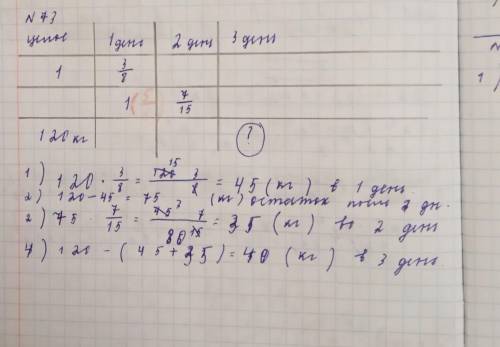 N 73
целое 1 день 2 день 3 день
1 3/8
1 7/15
120 кг ?
1) 120 · 3/8 = 120 15 3/8 = 45 (кг) в 1 день
2) 120 - 45 = 75 (кг) остаток после 1 дн.
2) 75 · 7/15 = 75 7/15 = 35 (кг) во 2 день
4) 120 - (45 + 35) = 40 (кг) в 3 день